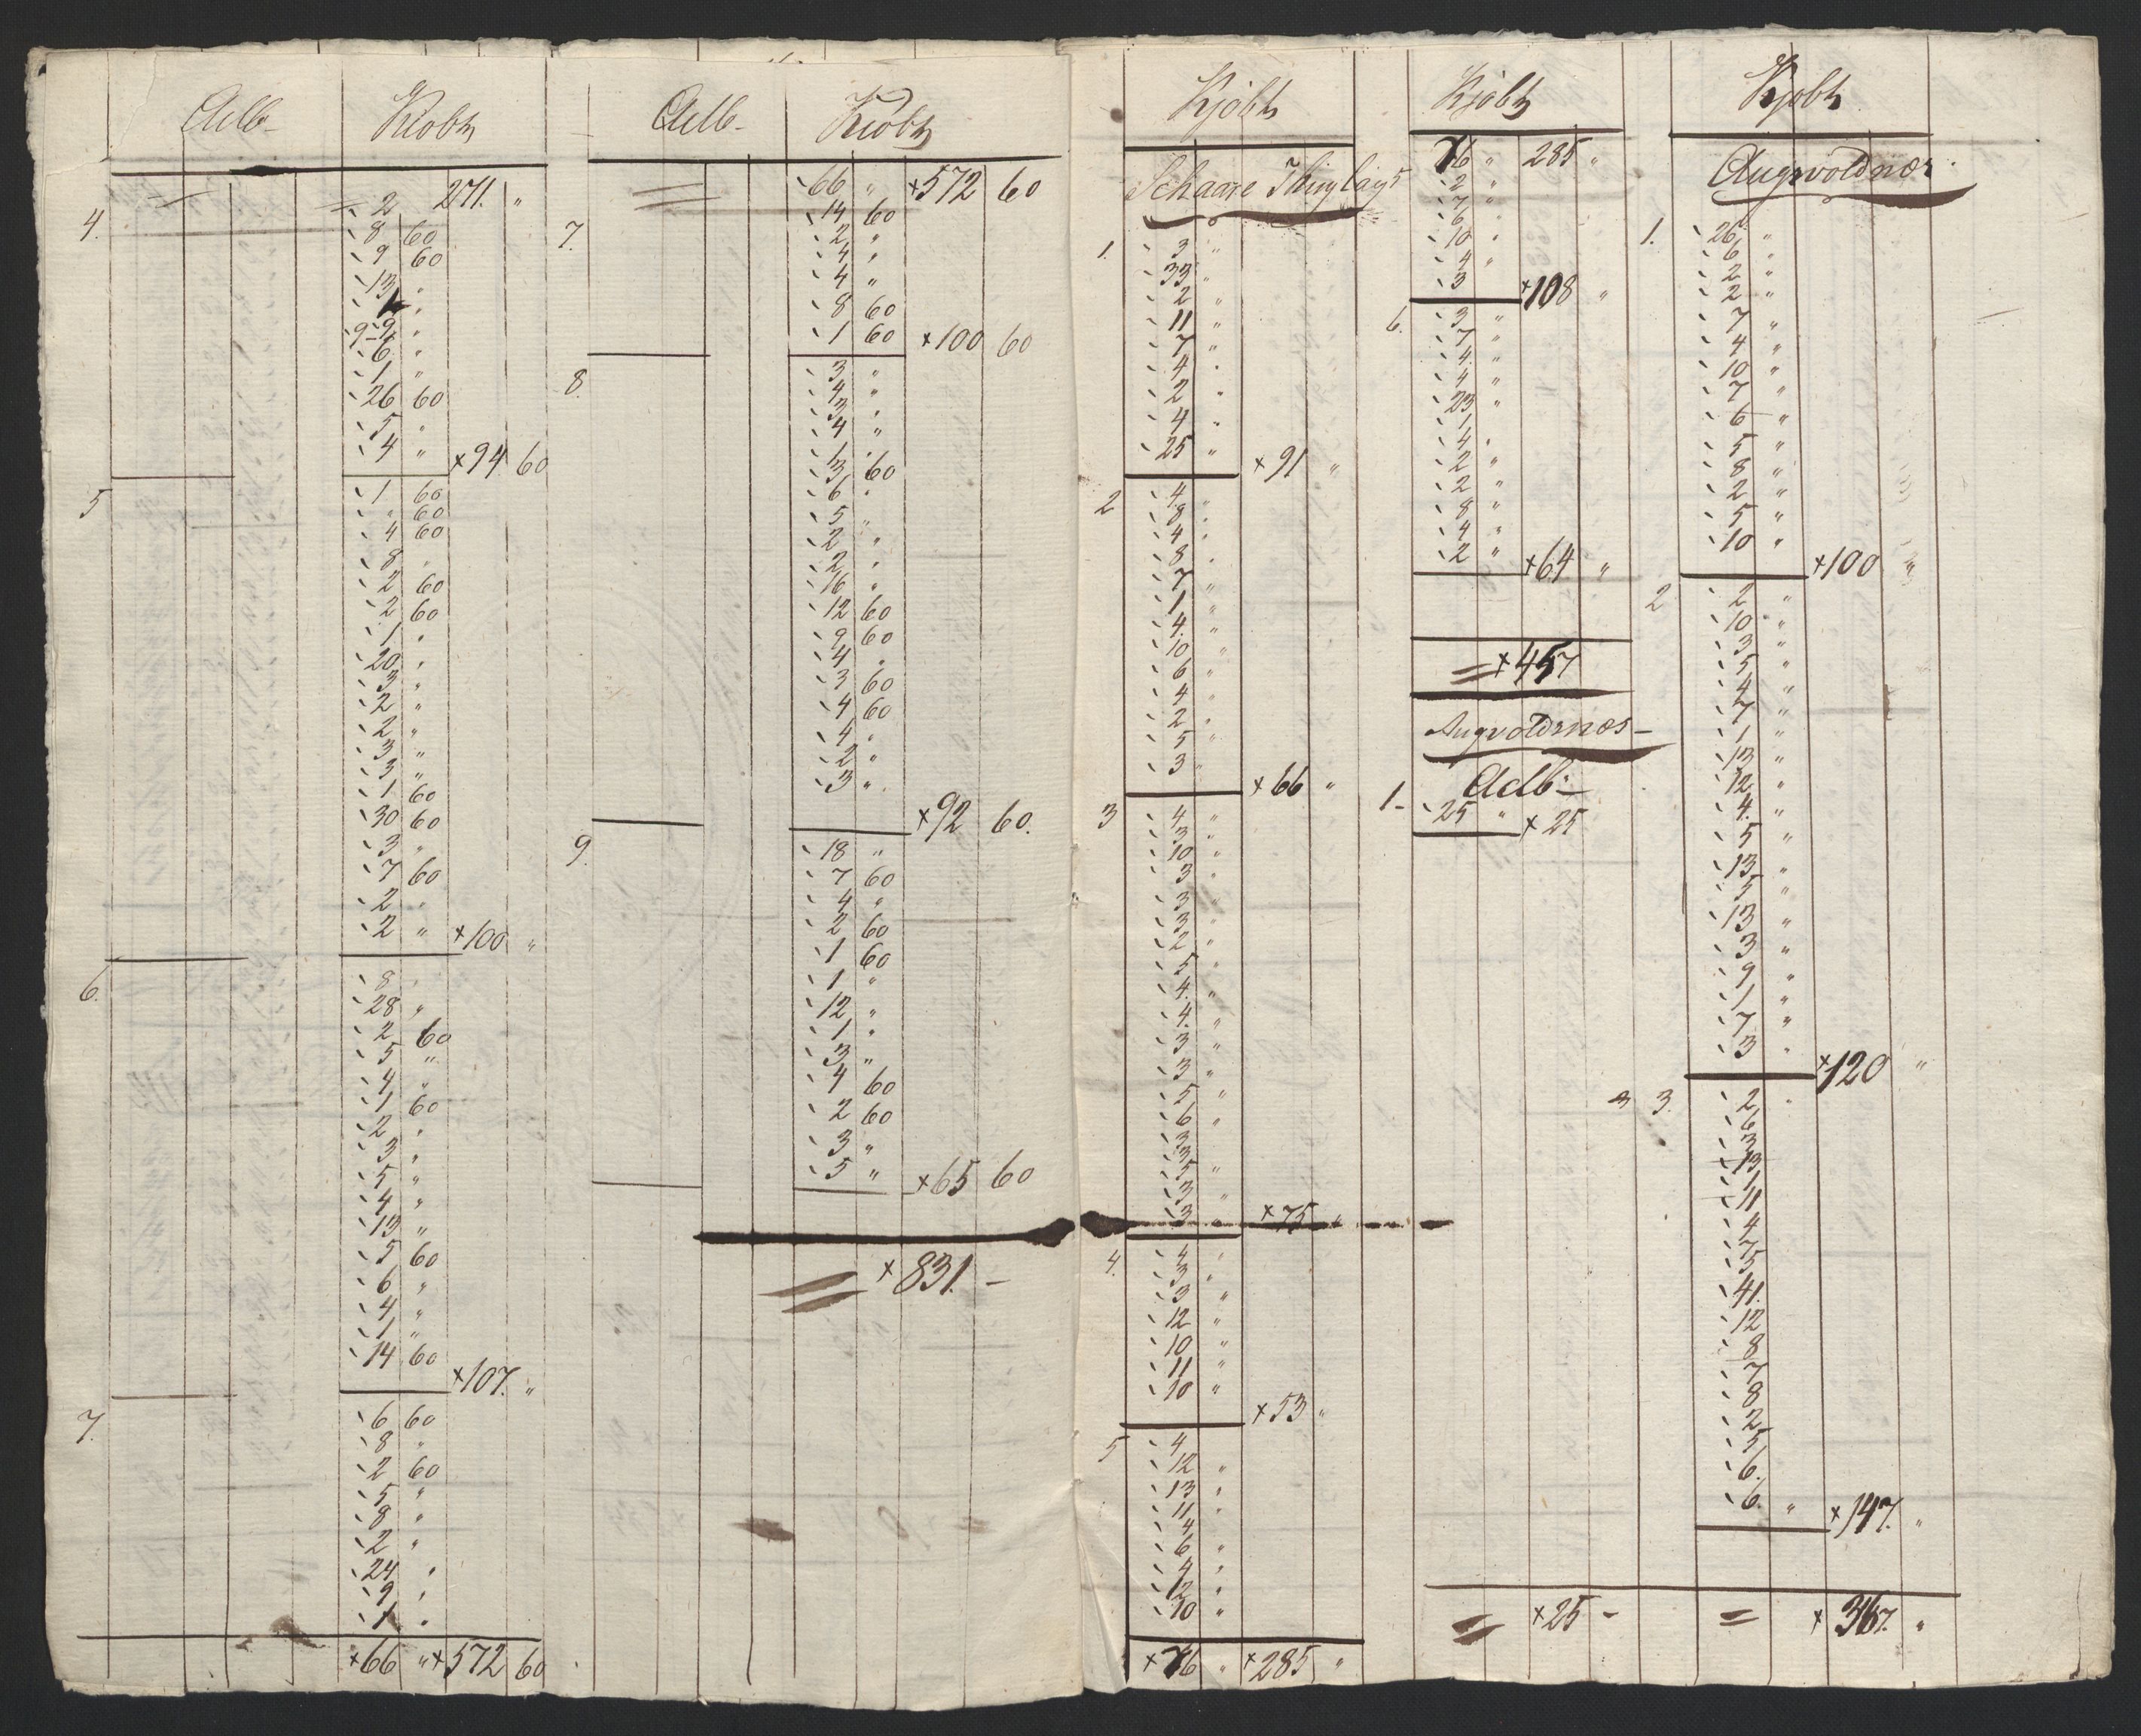 Adb- Kiobh
= = 2 271. "
4. 8 60
9 60
13 "
1 "
9-9 "
6 "
1 "
26 60
5 "
4 " ×94 60
5 1 60
" 60
4 60
8 "
2 60
2 60
1 "
20 "
3 "
2 "
2 "
3 "
3 "
1 60
30 60
3 "
7 60
2 "
2 " ×100 "
6. 8 "
28 "
2 60
5 "
4 "
1 60
2 "
3 "
5 "
4 "
13 "
5 60
6 "
4 "
1 "
14 60 ×107. "
7. 6 60
8 "
2 60
5 "
8 "
2 "
24 "
9 "
1 "
×66 " ×572 60
Adb- Kiobh
= 66 " ×572 60
7. 14 60
2 "
4 "
4 "
8 60
1 60 ×100 60
8. 3 "
4 "
3 "
4 "
1 "
3 60
6 "
5 "
2 "
2 "
16 "
12 60
9 60
4 "
3 60
4 60
4 "
2 "
3 " ×92 60.
9. 18 "
7 60
4 "
2 60
1 60
1 "
12 "
1 "
3 "
4 60
2 60
3 "
5 " ×65 60
= ×831. -
Kjøbh
Schaare Thinglaug
1. 3 "
33 "
2 "
11 "
7 "
4 "
2 "
4 "
25 " ×91 "
2 4 "
8 "
4 "
8 "
7 "
1 "
4. "
10 "
6 "
4 "
2 "
5 "
3 " ×66 "
3 4 "
3 "
10 "
3 "
3 "
3 "
2 "
5 "
4. "
4. "
3 "
3 "
5 "
6 "
3
3
5 "
3 "
3 " ×75 "
4. 4 "
3 "
3 "
12 "
10 "
11 "
10 " ×53 "
5 4
12 "
13 "
11 "
4 "
6 "
4 "
12 "
10 "
×76 " ×285 "
Kjøbh
76 " 285 "
2 "
7 "
6 "
10 "
4 "
3 ×108 "
6. 3 "
7 "
4. "
4 "
23 "
1
4 "
2 "
2 "
8 "
4 "
2 " ×64 "
= ×457
Augvoldnæs-
Adb-
1- 25 " × 25
= ×25 -
Kjøbh
Augvoldnæs.
1. 26 "
6 "
2 "
2 "
7 "
4 "
10 "
7 "
6 "
5 "
8 "
2 "
5 "
10 " ×100 "
2 2 "
10 "
3 "
5 "
4 "
7 "
1 "
13 "
12 "
4. "
5 "
13 "
5 "
13 "
3 "
9 "
1 "
7 "
3 " ×120 "
3 3. 2 "
6
3
13
1
11
4
7
5
41.
12
8
7
8
2
5
6.
6. " ×147. "
= ×367. "